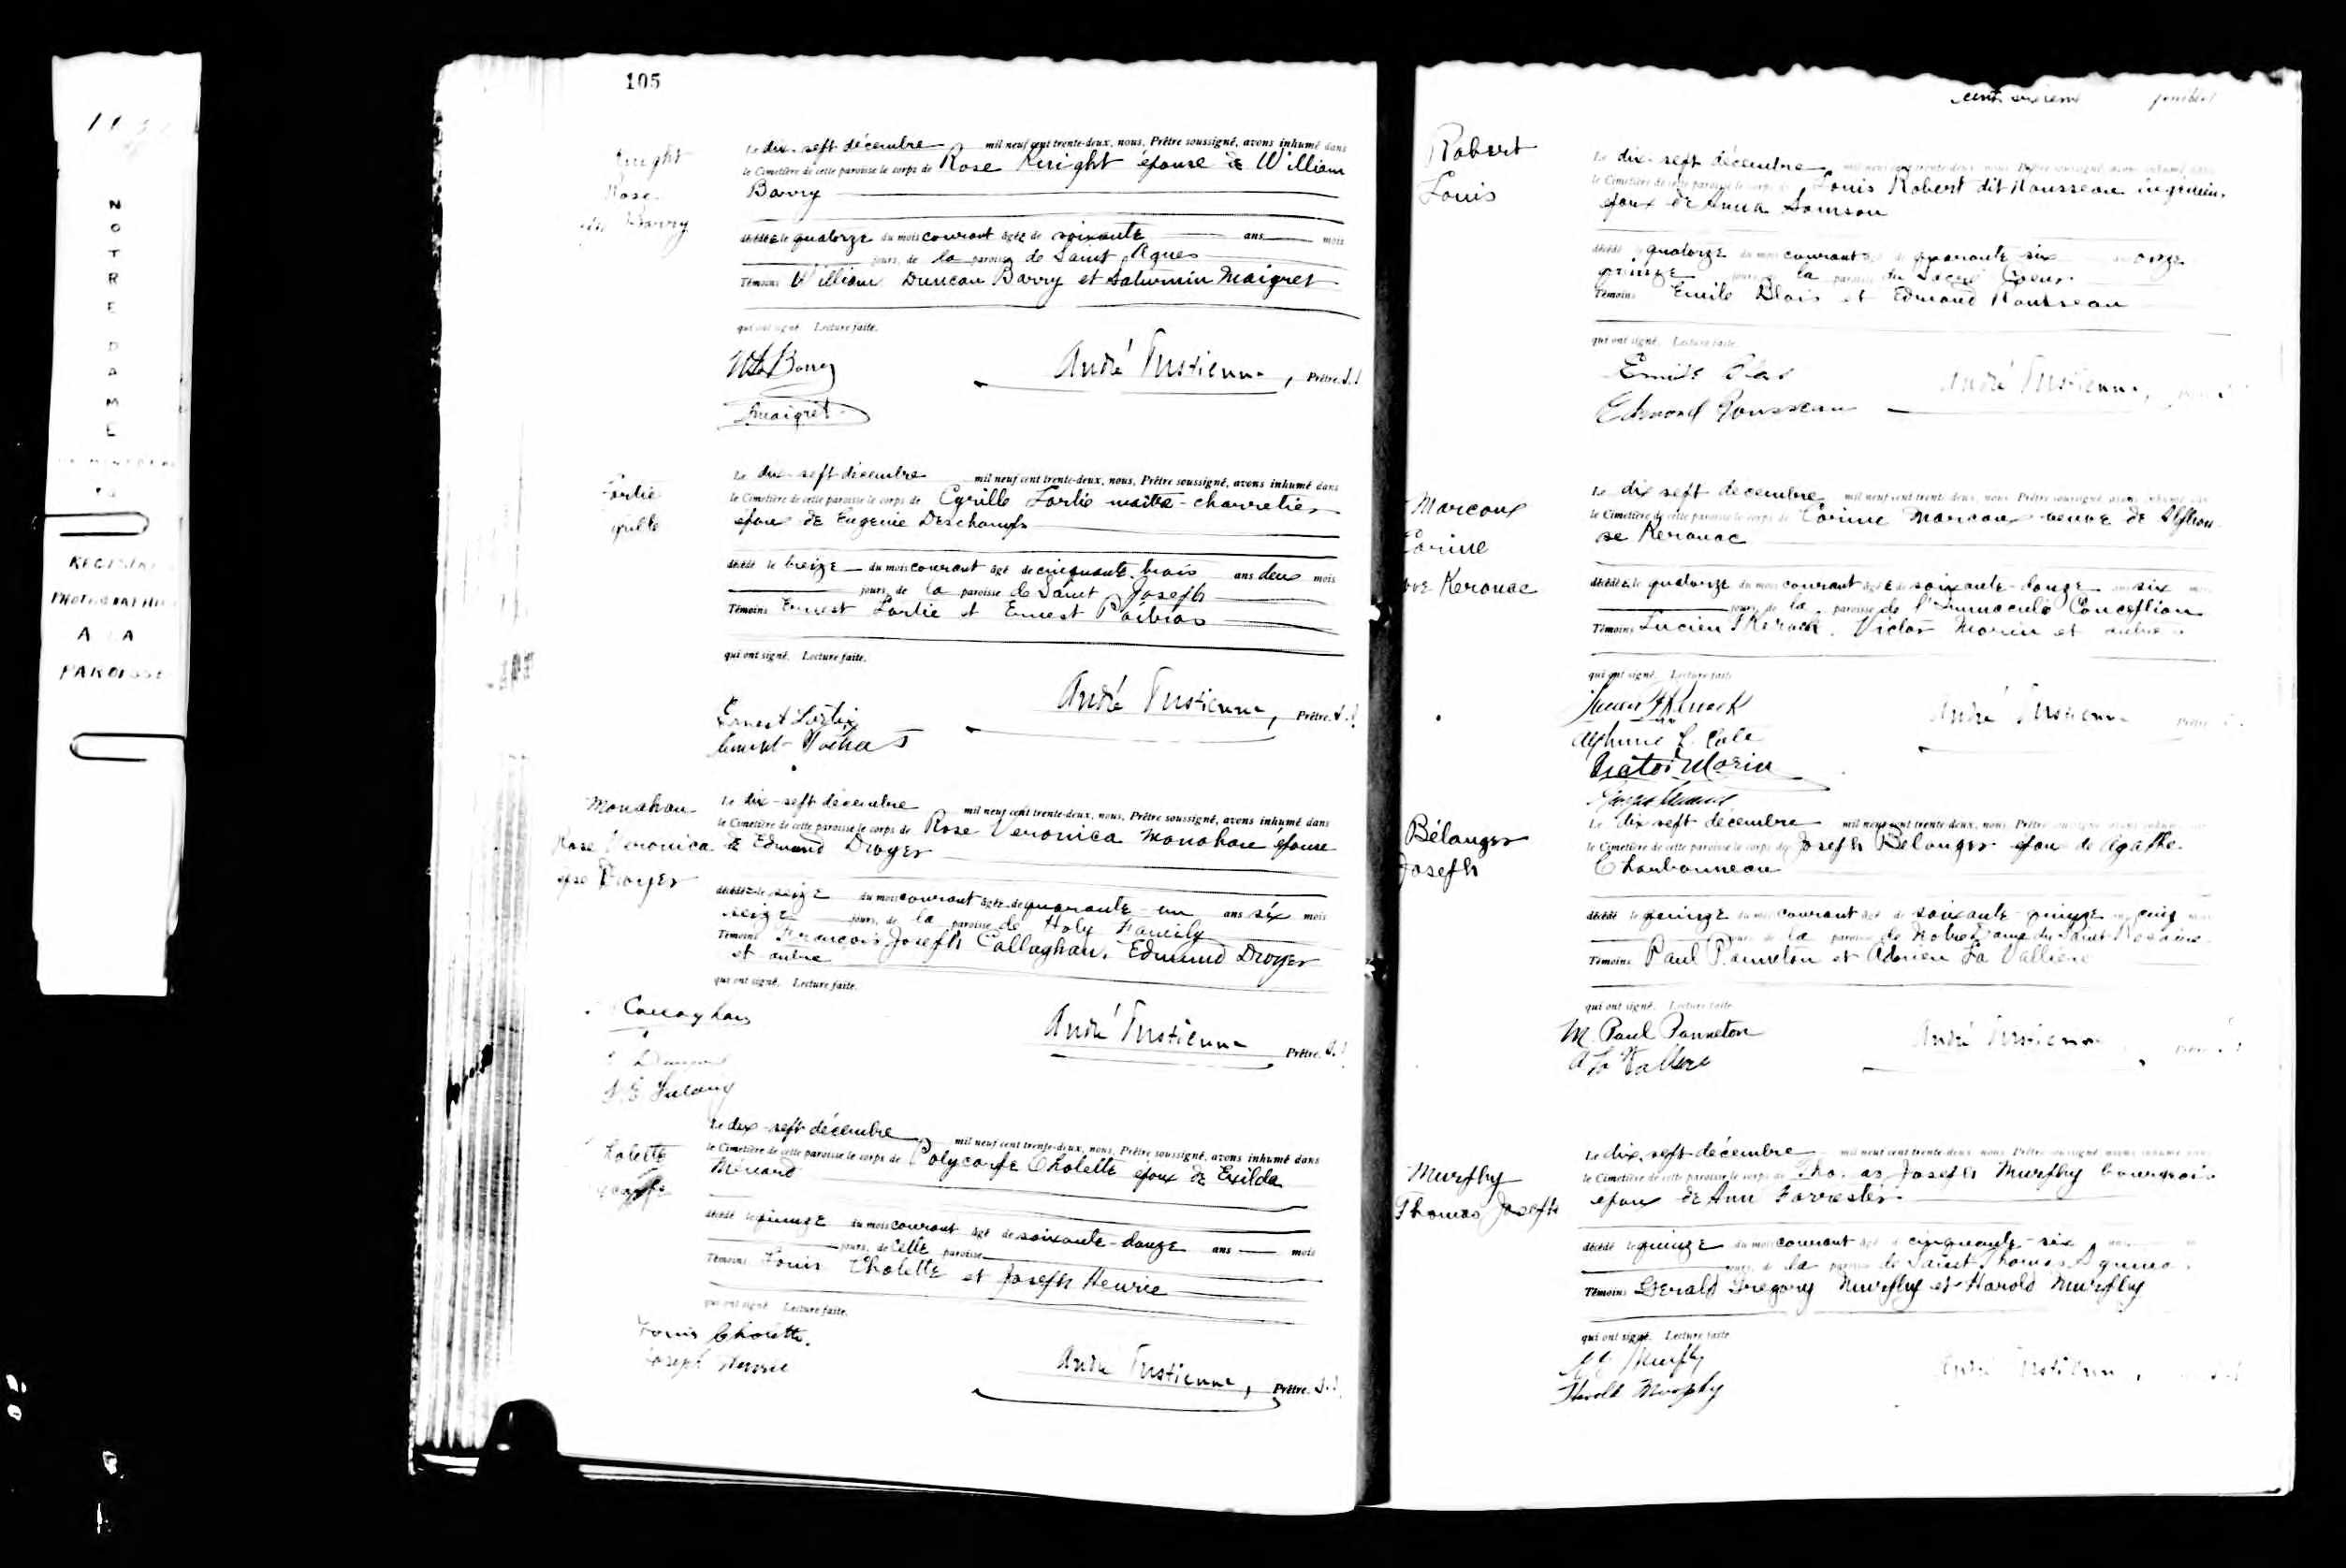 NOTRE
DAME
REGISTRE
PHOTOGRAPHIE
A LA
PAROISSE
105
Knight
Rose
Barry
Le dix-sept décembre mil neuf cent trente-deux, nous, Prêtre soussigné, avons inhumé dans
le Cimetière de cette paroisse le corps de Rose Knight épouse de William
Barry
décédée le quatorze du mois courant âgée de soixante ans mois
jours, de la paroisse de Saint Agnes
Témoins William Duncan Barry et Saturnin Maigret
qui ont signé. Lecture faite.
Barry
Maigret
André , Prêtre S.S.
Le dix-sept décembre mil neuf cent trente-deux, nous, Prêtre soussigné, avons inhumé dans
le Cimetière de cette paroisse le corps de Cyrille Lortie maître-charretier
époux de Eugenie Deschamps
décédé le treize du mois courant âgé de cinquante-trois ans deux mois
jours, de la paroisse de Saint Joseph
Témoins Ernest Lortie et Ernest
qui ont signé. Lecture faite.
Ernest Lortie
Ernest
André , Prêtre S.S.
Monahan
Rose Veronica
épse Dwyer
Le dix-sept décembre mil neuf cent trente-deux, nous, Prêtre soussigné, avons inhumé dans
le Cimetière de cette paroisse le corps de Rose Veronica Monahan épouse
de Edmund Dwyer
décédée le seize du mois courant âgée de quarante-un ans six mois
seize jours, de la paroisse de Holy Family
Témoins François Joseph Callaghan, Edmund Dwyer
et autre
qui ont signé. Lecture faite.
Callaghan
André , Prêtre S.S.
Cholette
Le dix-sept décembre mil neuf cent trente-deux, nous, Prêtre soussigné, avons inhumé dans
le Cimetière de cette paroisse le corps de Polycarpe Cholette époux de Exilda
Ménard
décédé le quinze du mois courant âgé de soixante-douze ans mois
jours, de cette paroisse
Témoins Louis Cholette et Joseph Henrie
qui ont signé. Lecture faite.
Louis Cholette
Joseph Henrie
André , Prêtre S.S.
Robert
Louis
Le dix-sept décembre mil neuf cent trente-deux, nous, Prêtre soussigné, avons inhumé dans
le Cimetière de cette paroisse le corps de Louis Robert dit Rousseau ingénieur
époux de Anna Samson
décédé quatorze du mois courant âgé de quarante-six ans onze
quinze jours, de la paroisse du Sacré Coeur
Témoins Emile Blais et Edmond Rousseau
qui ont signé. Lecture faite.
Emile Blais
Edmond Rousseau
André
Marcoux
Corinne
vve Kerouac
Le dix sept decembre mil neuf cent trente-deux, nous, Prêtre soussigné, avons inhumé dans
le Cimetière de cette paroisse le corps de Corinne Marcoux veuve de Alphon
se Kerouac
décédée le quatorze du mois courant âgée de soixante-douze ans six mois
jours, de la paroisse de l'Immaculé Conception
Témoins Lucien Victor Morin et autres
qui ont signé. Lecture faite.
Lucien
Victor Morin
André
Bélanger
Joseph
Le dix sept décembre mil neuf cent trente-deux, nous, Prêtre
le Cimetière de cette paroisse le corps de Joseph Bélanger époux de Agathe
Charbonneau
décédé le quinze du mois courant âgé de soixante-quinze ans cinq mois
jours, de la paroisse de Notre Dame du Saint-Rosaire
Témoins Paul Panneton et Adrien La Vallière
qui ont signé. Lecture faite.
M. Paul Panneton
A La Vallière
André
Murphy
Thomas Joseph
Le dix-sept décembre mil neuf cent trente-deux, nous, Prêtre soussigné, avons inhumé dans
le Cimetière de cette paroisse le corps de Thomas Joseph Murphy bourgeois
époux de Ann Forrester
décédé le quinze du mois courant âgé de cinquante-six ans
jours, de la paroisse de Saint Thomas Aquinas
Témoins Gerald Gregory Murphy et Harold Murphy
qui ont signé. Lecture faite.
Murphy
Harold Murphy